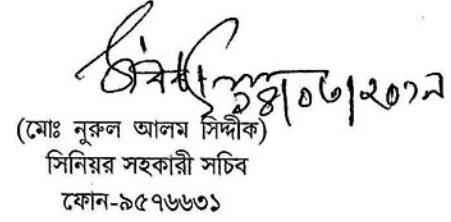 ১৪/০৩/২০১৯
(মোঃ নুরুল আলম সিদ্দীক)
সিনিয়র সহকারী সচিব
ফোন-৯৫৭৬৬৩১